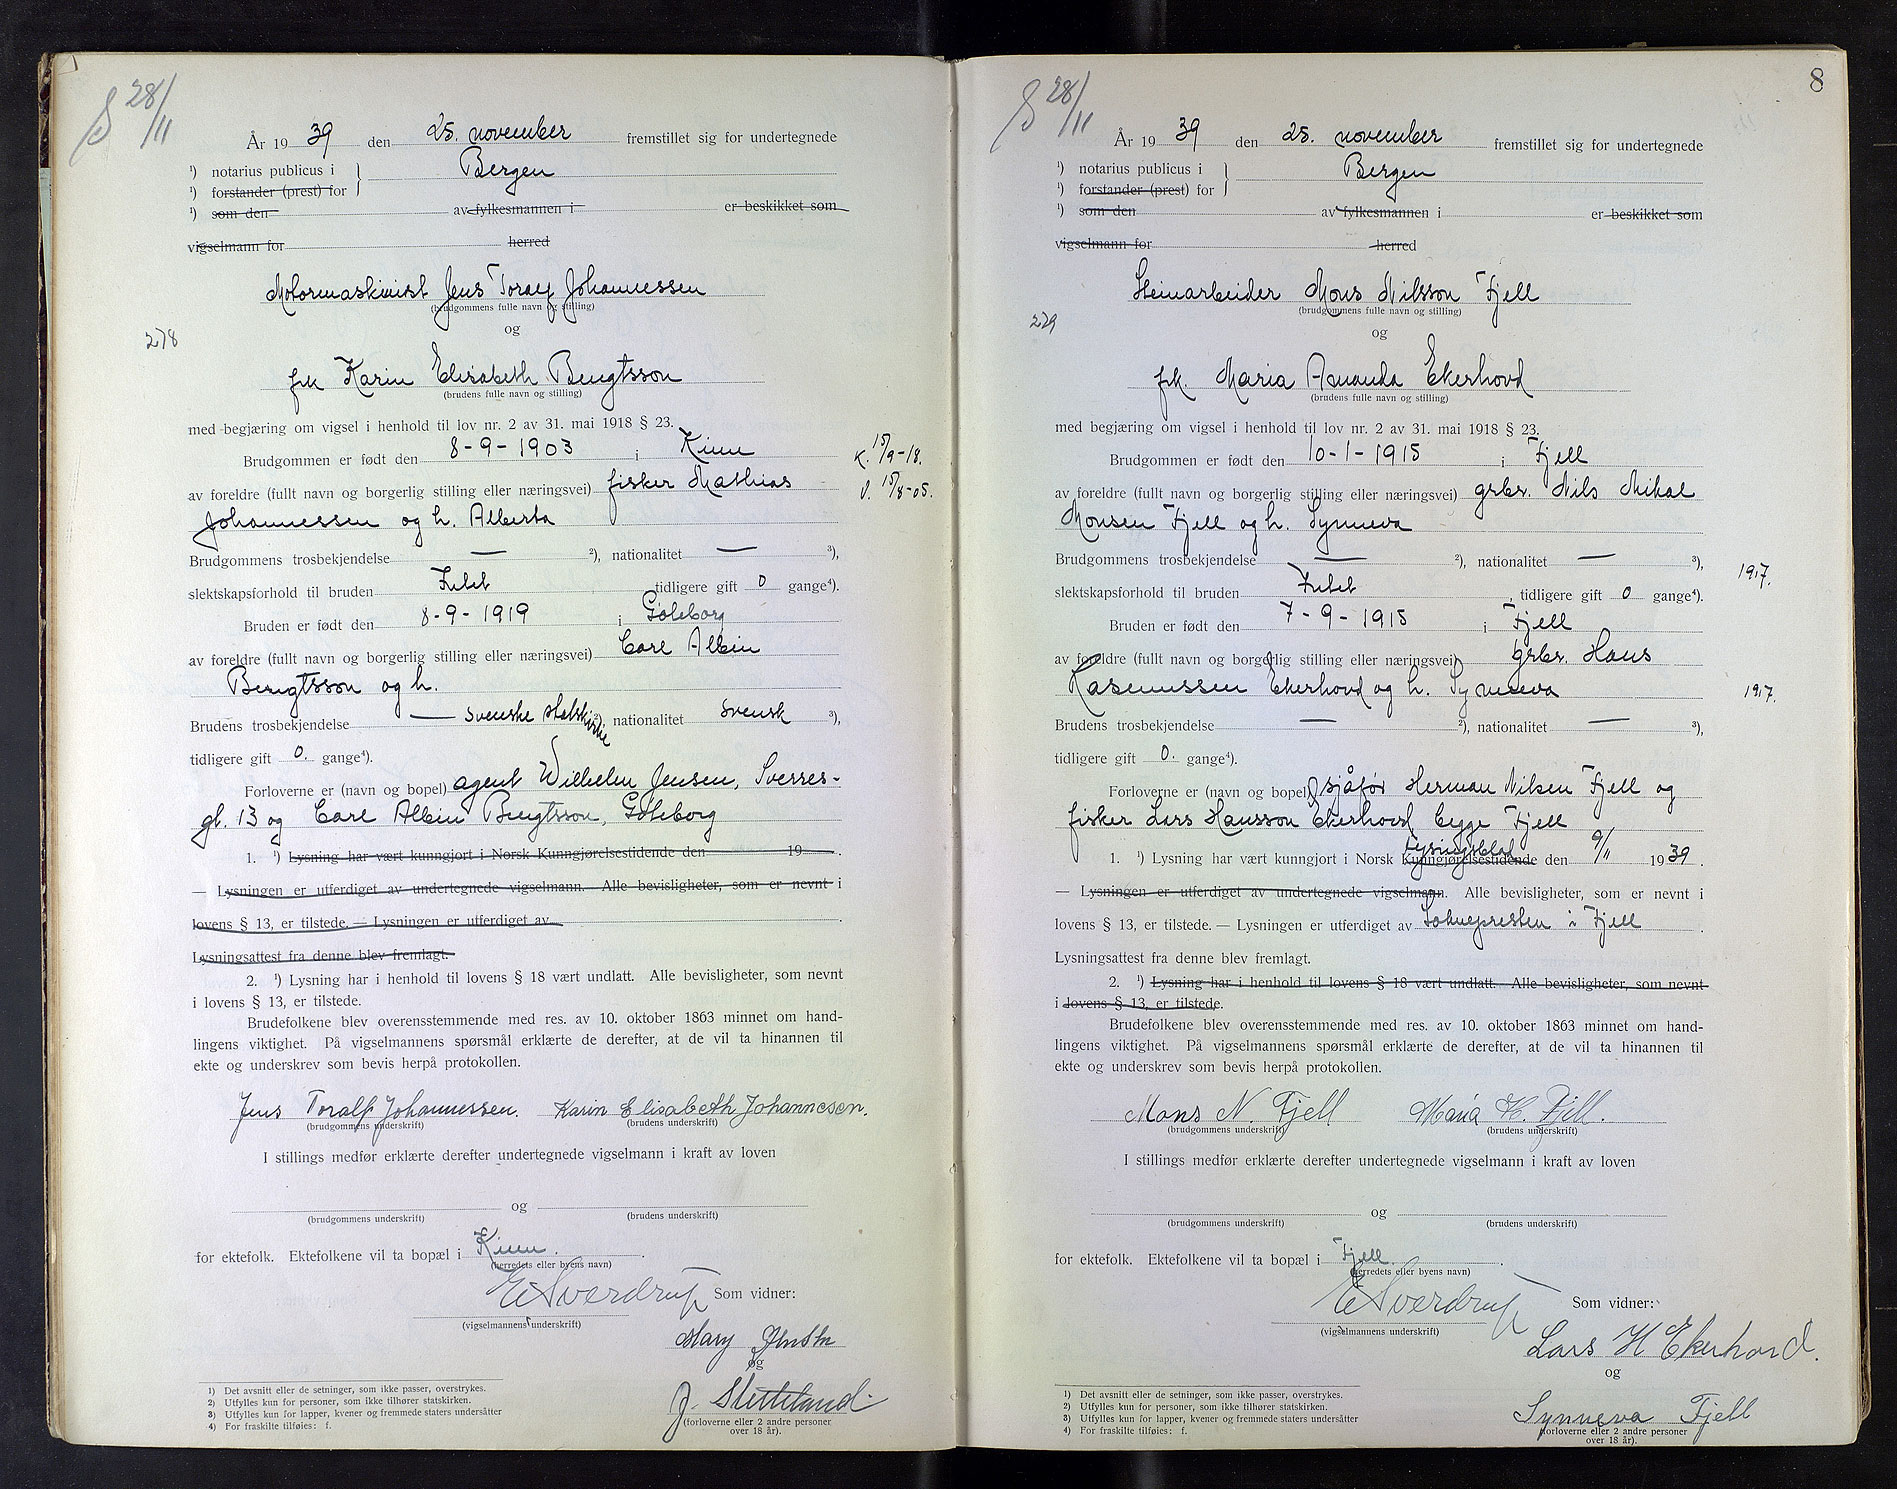 S 28/11
År 19 39 den 25. november fremstillet sig for undertegnede
¹) notarius publicus i } Bergen
¹) forstander (prest) for
¹) som den av fylkesmannen i er beskikket som
vigselmann for herred
Motormaskinist Jens Toralf Johannessen
(brudgommens fulle navn og stilling)
og
278
frk Karin Elisabeth Bengtsson
(brudens fulle navn og stilling)
med begjæring om vigsel i henhold til lov nr. 2 av 31. mai 1918 § 23.
Brudgommen er født den 8-9-1903 i Kinn
K. 15/9-18.
av foreldre (fullt navn og borgerlig stilling eller næringsvei) fisker Mathias
V. 15/8-05.
Johannessen og h. Alberta
Brudgommens trosbekjendelse — ²), nationalitet — ³),
slektskapsforhold til bruden Intet tidligere gift 0 gange⁴).
Bruden er født den 8-9-1919 i Göteborg
av foreldre (fullt navn og borgerlig stilling eller næringsvei) Carl Albin
Bengtsson og h.
Brudens trosbekjendelse — svenske statskirke ²), nationalitet svensk ³),
tidligere gift 0. gange⁴).
Forloverne er (navn og bopel) agent Wilhelm Jensen, Sverres-
gt. 13 og Carl Albin Bengtsson, Göteborg
1. ¹) Lysning har vært kunngjort i Norsk Kunngjørelsestidende den 19 .
— Lysningen er utferdiget av undertegnede vigselmann. Alle bevisligheter, som er nevnt i
lovens § 13, er tilstede. — Lysningen er utferdiget av .
Lysningsattest fra denne blev fremlagt.
2. ¹) Lysning har i henhold til lovens § 18 vært undlatt. Alle bevisligheter, som nevnt
i lovens § 13, er tilstede.
Brudefolkene blev overensstemmende med res. av 10. oktober 1863 minnet om hand-
lingens viktighet. På vigselmannens spørsmål erklærte de derefter, at de vil ta hinannen til
ekte og underskrev som bevis herpå protokollen.
Jens Toralf Johannessen. Karin Elisabeth Johannesen.
(brudgommens underskrift) (brudens underskrift)
I stillings medfør erklærte derefter undertegnede vigselmann i kraft av loven
og
(brudgommens underskrift) (brudens underskrift)
for ektefolk. Ektefolkene vil ta bopæl i Kinn.
(herredets eller byens navn)
E Sverdrup Som vidner:
(vigselmannens underskrift)
Mary Jensen
og
J. Sletteland.
(forloverne eller 2 andre personer
over 18 år).
1) Det avsnitt eller de setninger, som ikke passer, overstrykes.
2) Utfylles kun for personer, som ikke tilhører statskirken.
3) Utfylles kun for lapper, kvener og fremmede staters undersåtter
4) For fraskilte tilføies: f.
8
S 28/11
År 19 39 den 25. november fremstillet sig for undertegnede
¹) notarius publicus i } Bergen
¹) forstander (prest) for
¹) som den av fylkesmannen i er beskikket som
vigselmann for herred
Steinarbeider Mons Nilsson Fjell
(brudgommens fulle navn og stilling)
279
og
frk. Maria Amanda Ekerhovd
(brudens fulle navn og stilling)
med begjæring om vigsel i henhold til lov nr. 2 av 31. mai 1918 § 23.
Brudgommen er født den 10-1-1915 i Fjell
av foreldre (fullt navn og borgerlig stilling eller næringsvei) grbr. Nils Mikal
Monsen Fjell og h. Synneva
Brudgommens trosbekjendelse — ²), nationalitet — ³),
191.7.
slektskapsforhold til bruden Intet , tidligere gift 0 gange⁴).
Bruden er født den 7-9-1915 i Fjell
av foreldre (fullt navn og borgerlig stilling eller næringsvei) grbr. Hans
Rasmussen Ekerhovd og h. Synneva
191.7.
Brudens trosbekjendelse — ²), nationalitet — ³),
tidligere gift 0. gange⁴).
Forloverne er (navn og bopel) sjåfør Herman Nilsen Fjell og
fisker Lars Hansson Ekerhovd begge Fjell
1. ¹) Lysning har vært kunngjort i Norsk Kunngjørelsestidende Lysingsblad den 9/11 19 39.
— Lysningen er utferdiget av undertegnede vigselmann. Alle bevisligheter, som er nevnt i
lovens § 13, er tilstede. — Lysningen er utferdiget av Soknepresten i Fjell .
Lysningsattest fra denne blev fremlagt.
2. ¹) Lysning har i henhold til lovens § 18 vært undlatt. Alle bevisligheter, som nevnt
i lovens § 13, er tilstede.
Brudefolkene blev overensstemmende med res. av 10. oktober 1863 minnet om hand-
lingens viktighet. På vigselmannens spørsmål erklærte de derefter, at de vil ta hinannen til
ekte og underskrev som bevis herpå protokollen.
Mons N. Fjell Maria H. Fjell.
(brudgommens underskrift) (brudens underskrift)
I stillings medfør erklærte derefter undertegnede vigselmann i kraft av loven
og
(brudgommens underskrift) (brudens underskrift)
for ektefolk. Ektefolkene vil ta bopæl i Fjell.
(herredets eller byens navn)
E Sverdrup Som vidner:
(vigselmannens underskrift)
Lars H Ekerhovd.
og
Synneva Fjell
(forloverne eller 2 andre personer
over 18 år).
1) Det avsnitt eller de setninger, som ikke passer, overstrykes.
2) Utfylles kun for personer, som ikke tilhører statskirken.
3) Utfylles kun for lapper, kvener og fremmede staters undersåtter
4) For fraskilte tilføies: f.